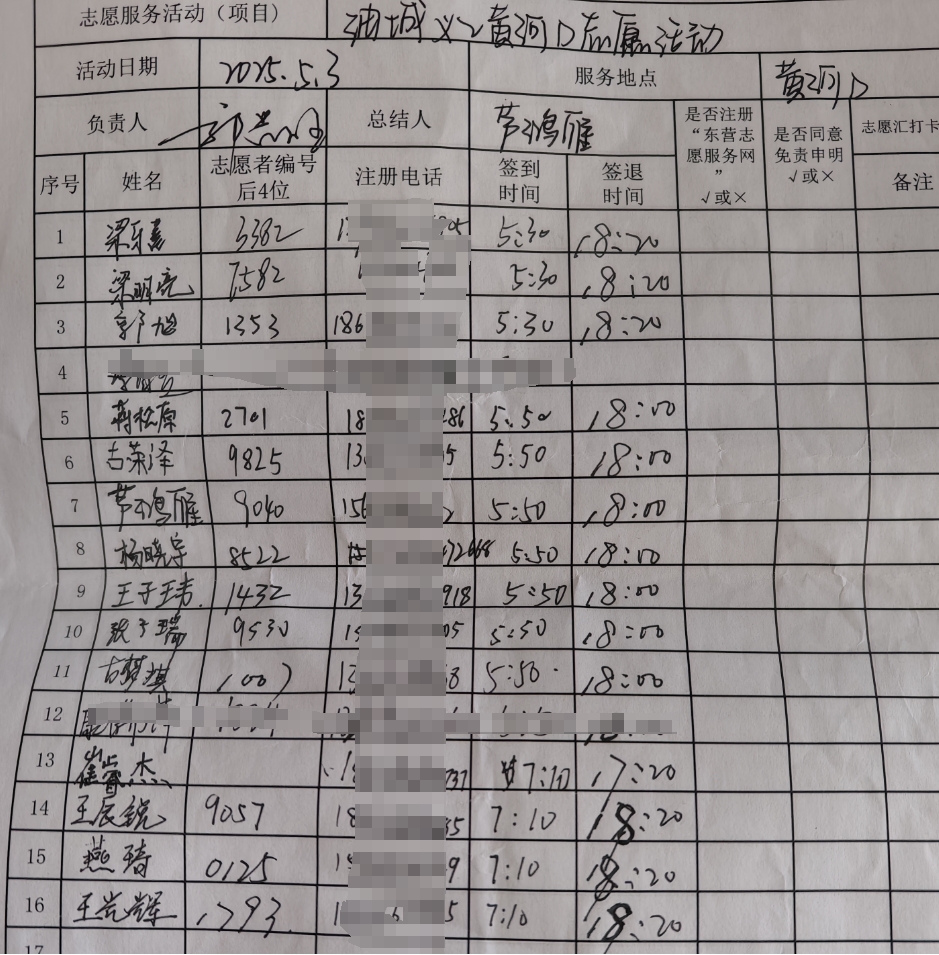 志愿服务活动（项目） 油城义工黄河口志愿活动
活动日期 2025.5.3 服务地点 黄河口
负责人 总结人 芦鸿雁 是否注册“东营志愿服务网”√或× 是否同意免责申明√或× 志愿汇打卡
序号 姓名 志愿者编号后4位 注册电话 签到时间 签退时间 备注
1 梁东 3382 5:30 18:20
2 梁明亮 7582 5:30 18:20
3 郭旭 1353 186 5:30 18:20
4
5 蒋松原 2701 18 286 5:50 18:00
6 古荣泽 9825 13 5 5:50 18:00
7 芦鸿雁 9040 156 5:50 18:00
8 杨晓宇 8522 5:50 18:00
9 王子玮 1432 13 918 5:50 18:00
10 张子瑞 9530 05 5:50 18:00
11 古梦琪 1007 8 5:50 18:00
12
13 崔睿杰 737 7:10 17:20
14 王辰锐 9057 18 35 7:10 18:20
15 燕琦 0125 9 7:10 18:20
16 王光辉 1793 5 7:10 18:20
17